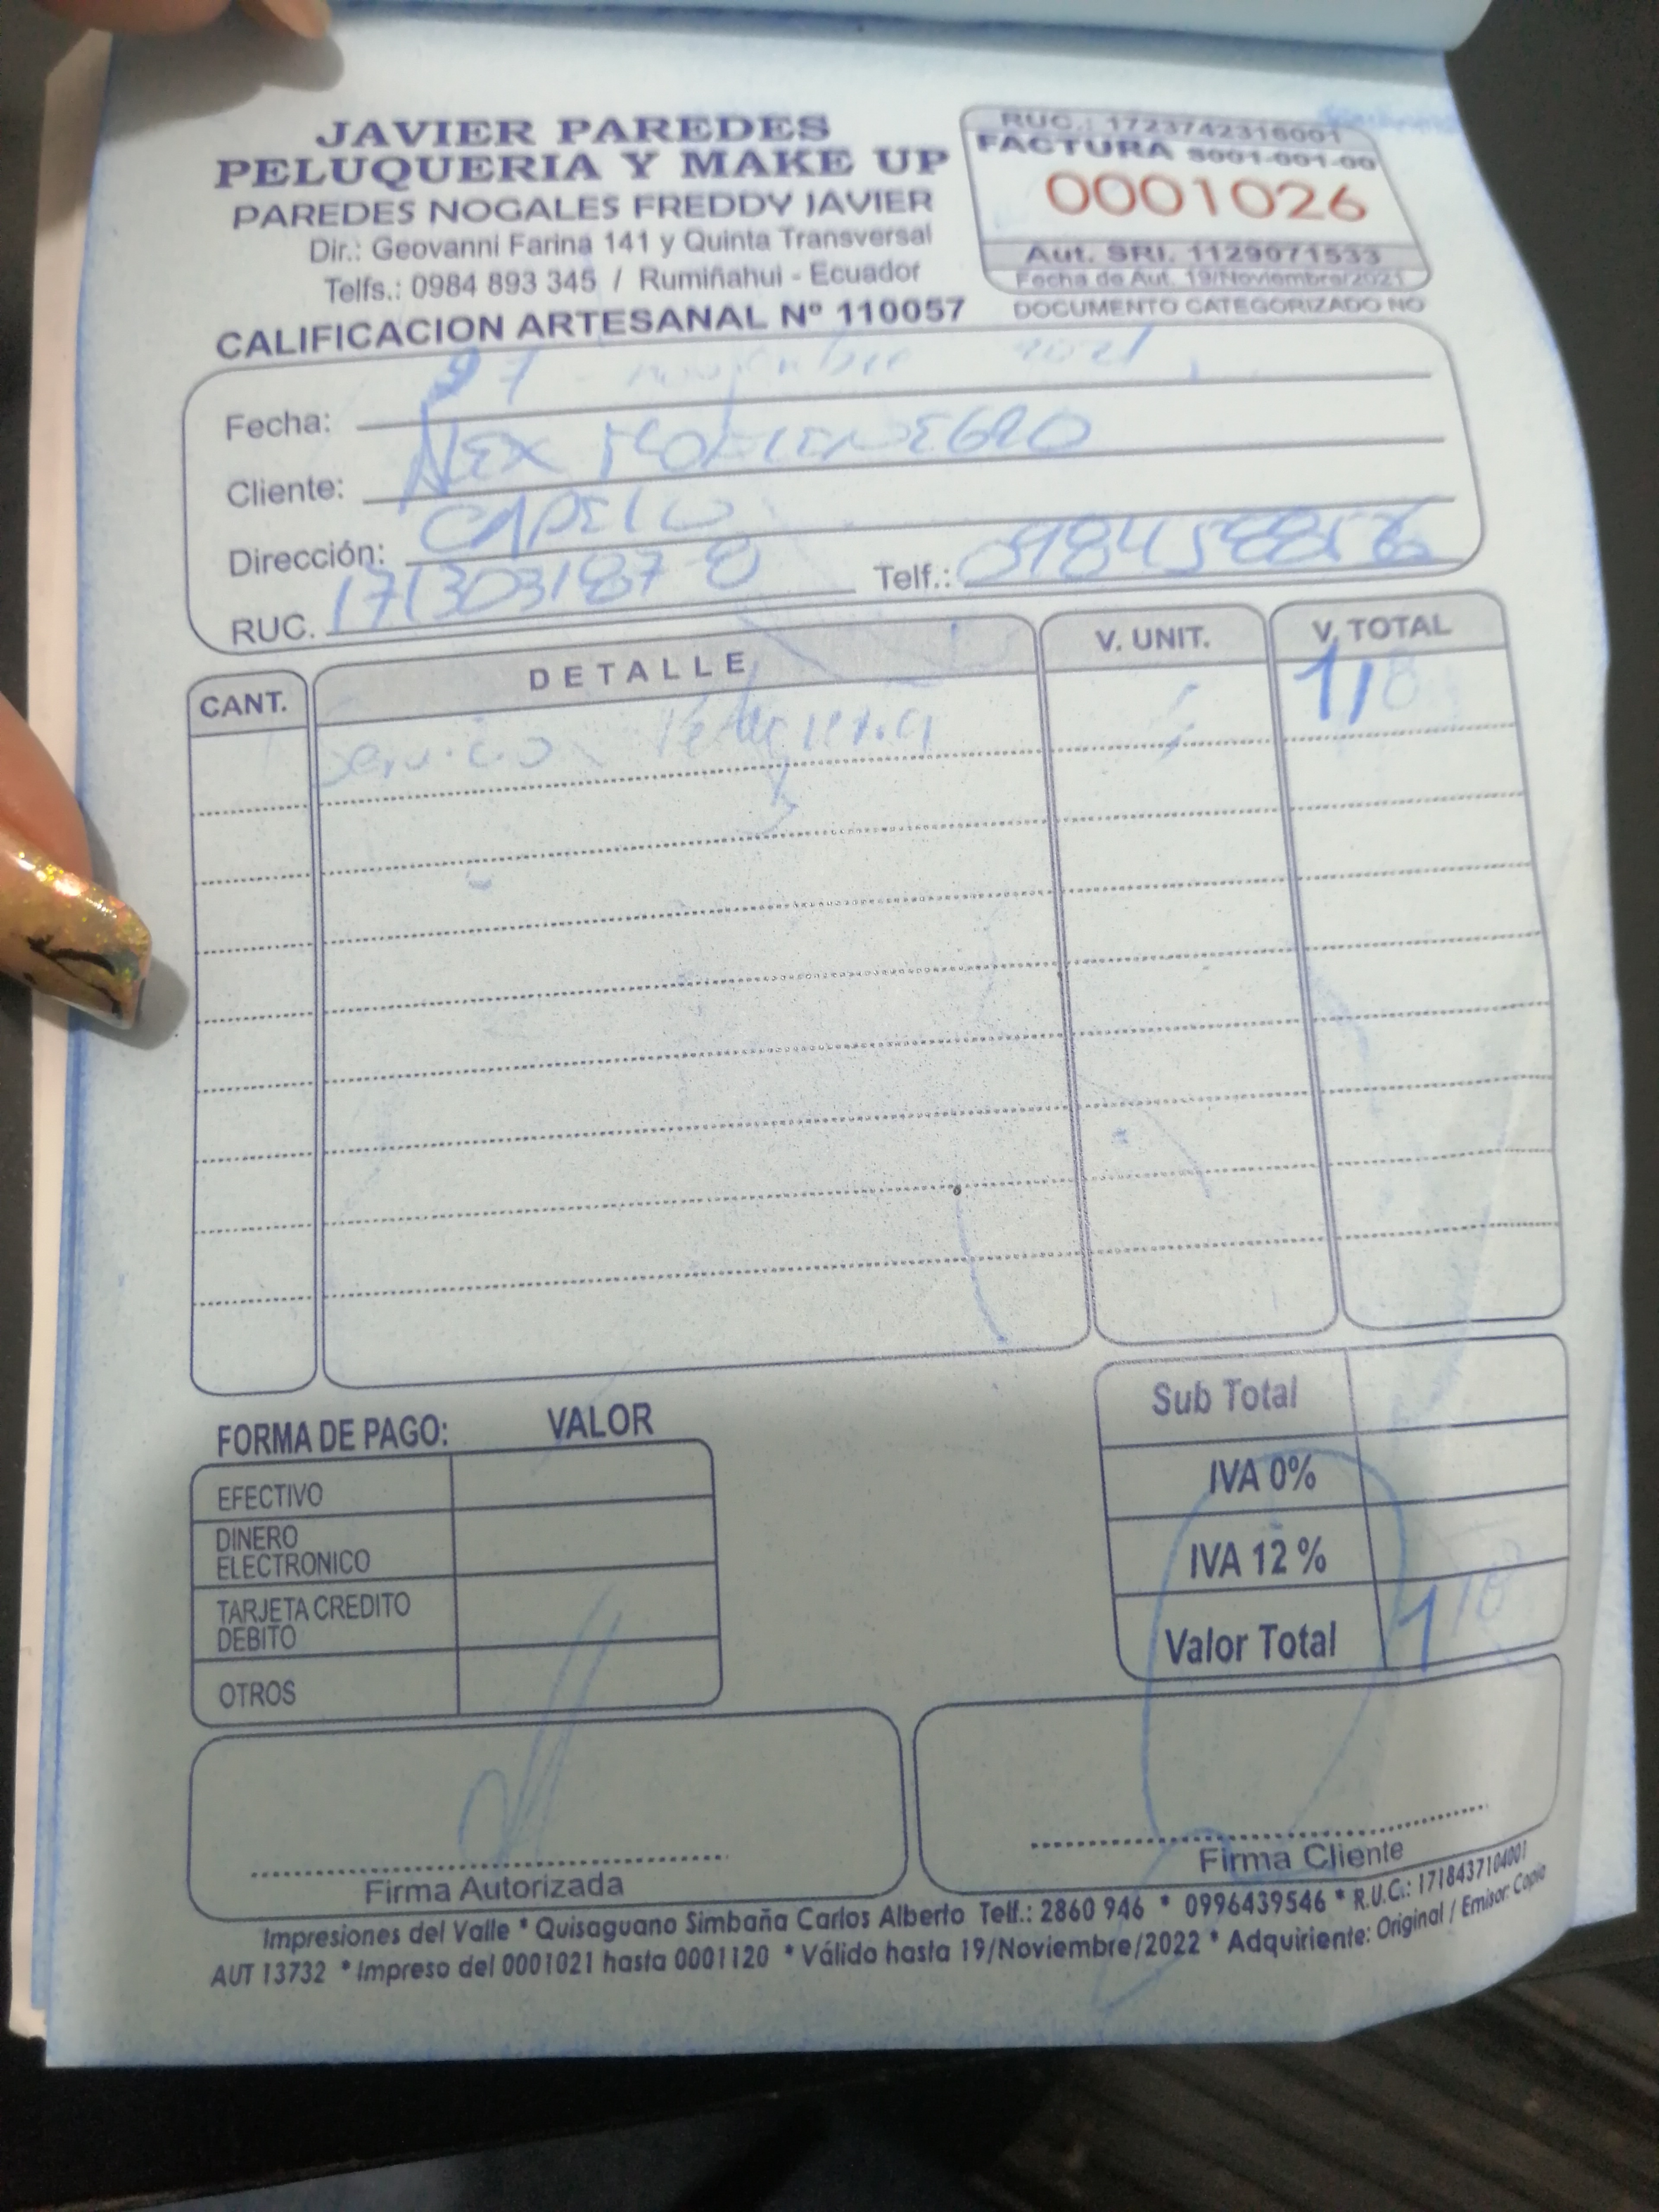 JAVIER PAREDES
PELUQUERIA Y MAKE UP
PAREDES NOGALES FREDDY JAVIER
Dir.: Geovanni Farina 141 y Quinta Transversal
Telfs.: 0984 893 345 / Rumiñahui - Ecuador
CALIFICACION ARTESANAL Nº 110057
RUC.: 1723742316001
FACTURA S001-001-00
0001026
Aut. SRI. 1129071533
Fecha de Aut. 19/Noviembre/2021
DOCUMENTO CATEGORIZADO NO
Fecha: 27 noviembre 2021
Cliente: ALEX MONTENEGRO
Dirección: CAPELO
RUC. 171303187 8 Telf.:
CANT. DETALLE V. UNIT. V. TOTAL
Servicio Peluqueria
FORMA DE PAGO: VALOR
EFECTIVO
DINERO
ELECTRONICO
TARJETA CREDITO
DEBITO
OTROS
Sub Total
IVA 0%
IVA 12 %
Valor Total
Firma Autorizada
Firma Cliente
Impresiones del Valle * Quisaguano Simbaña Carlos Alberto Telf.: 2860 946 * 0996439546 * R.U.C.: 1718437104001
AUT 13732 * Impreso del 0001021 hasta 0001120 * Válido hasta 19/Noviembre/2022 * Adquiriente: Original / Emisor: Copia